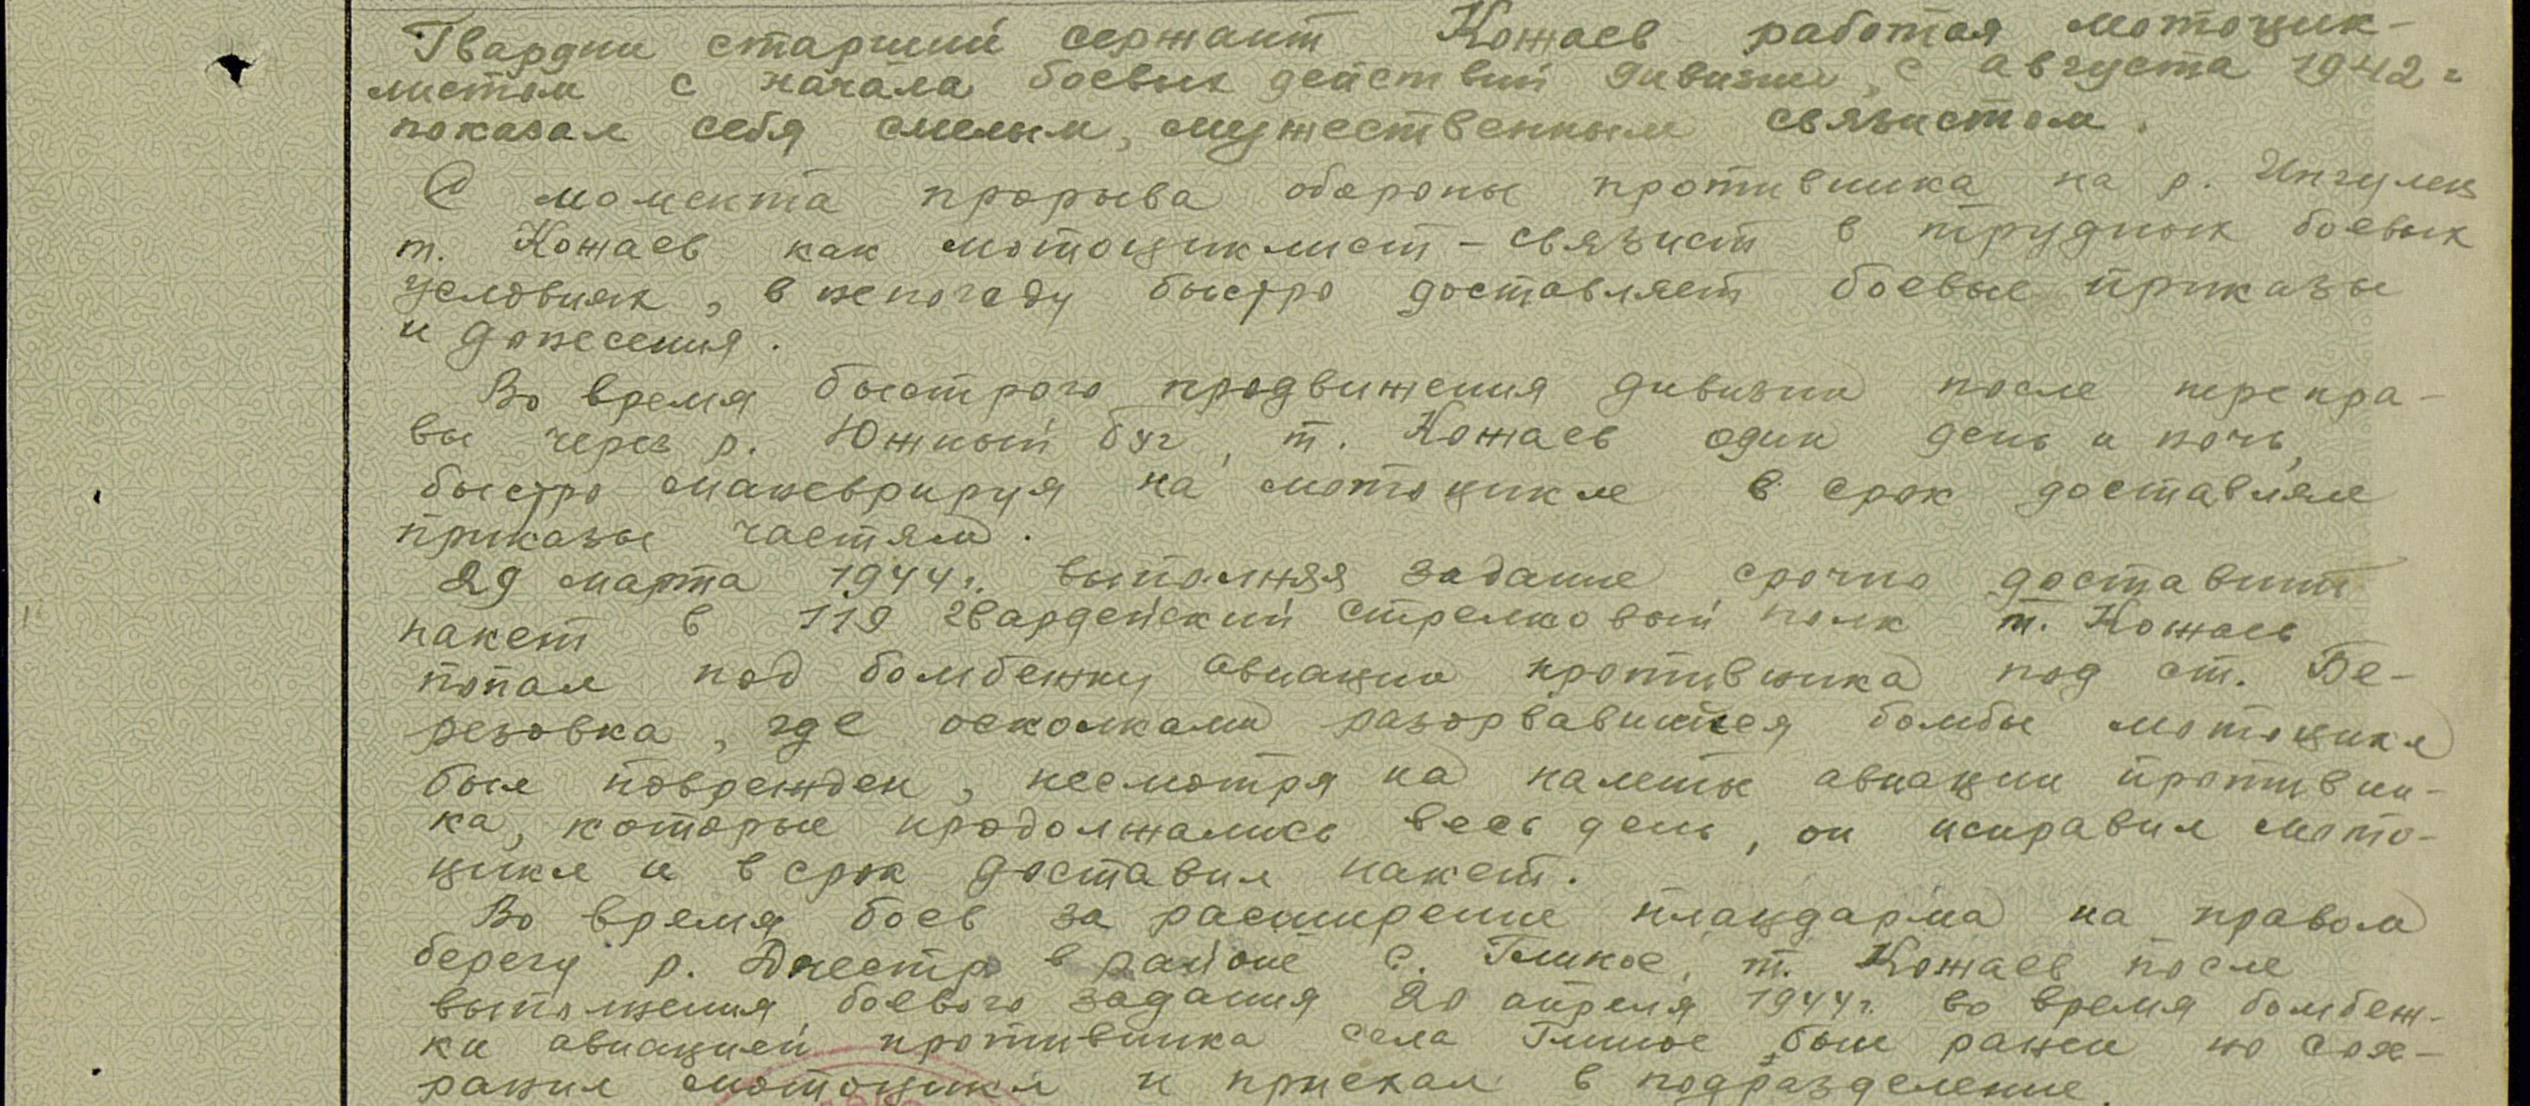 Гвардии старший сержант Кожаев работая мотоцик-
листом с начала боевых действий дивизии, с августа 1942 г
показал себя смелым, мужественным связистом.
С момента прорыва обороны противника на р. Ингулец
т. Кожаев как мотоциклист - связист в трудных боевых
условиях, в непогоду быстро доставляет боевые приказы
и донесения.
Во время быстрого продвижения дивизии после перепра-
вы через р. Южный Буг, т. Кожаев один день и ночь,
быстро маневрируя на мотоцикле в срок доставлял
приказы частям.
29 марта 1944 г. выполняя задание срочно доставит
пакет в 119 гвардейский стрелковый полк т. Кожаев
попал под бомбежку авиации противника под ст. Бе-
резовка, где осколками разорвавшейся бомбы мотоцикл
был поврежден, несмотря на налеты авиации противни-
ка, которые продолжались весь день, он исправил мото-
цикл и в срок доставил пакет.
Во время боев за расширение плацдарма на правом
берегу р. Днестр в районе с. Глиное, т. Кожаев после
выполнения боевого задания 20 апреля 1944 г. во время бомбеж-
ки авиацией противника села Глиное был ранен но сох-
ранил мотоцикл и приехал в подразделение.